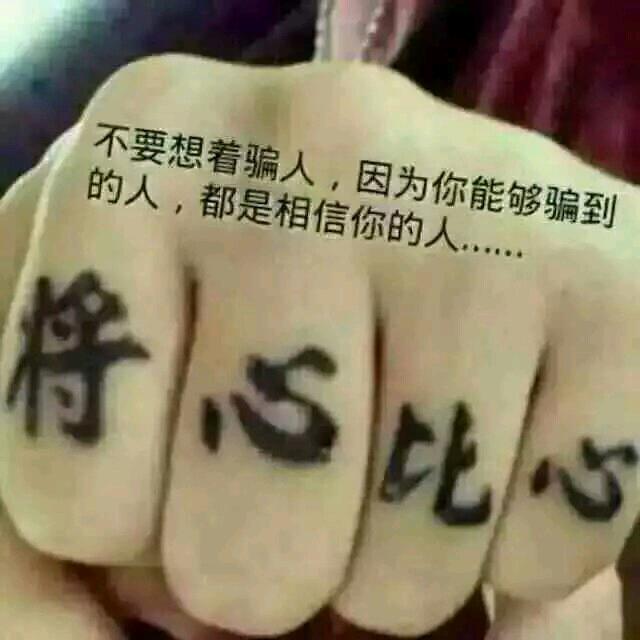 不要想着骗人，因为你能够骗到
的人，都是相信你的人......
将心比心